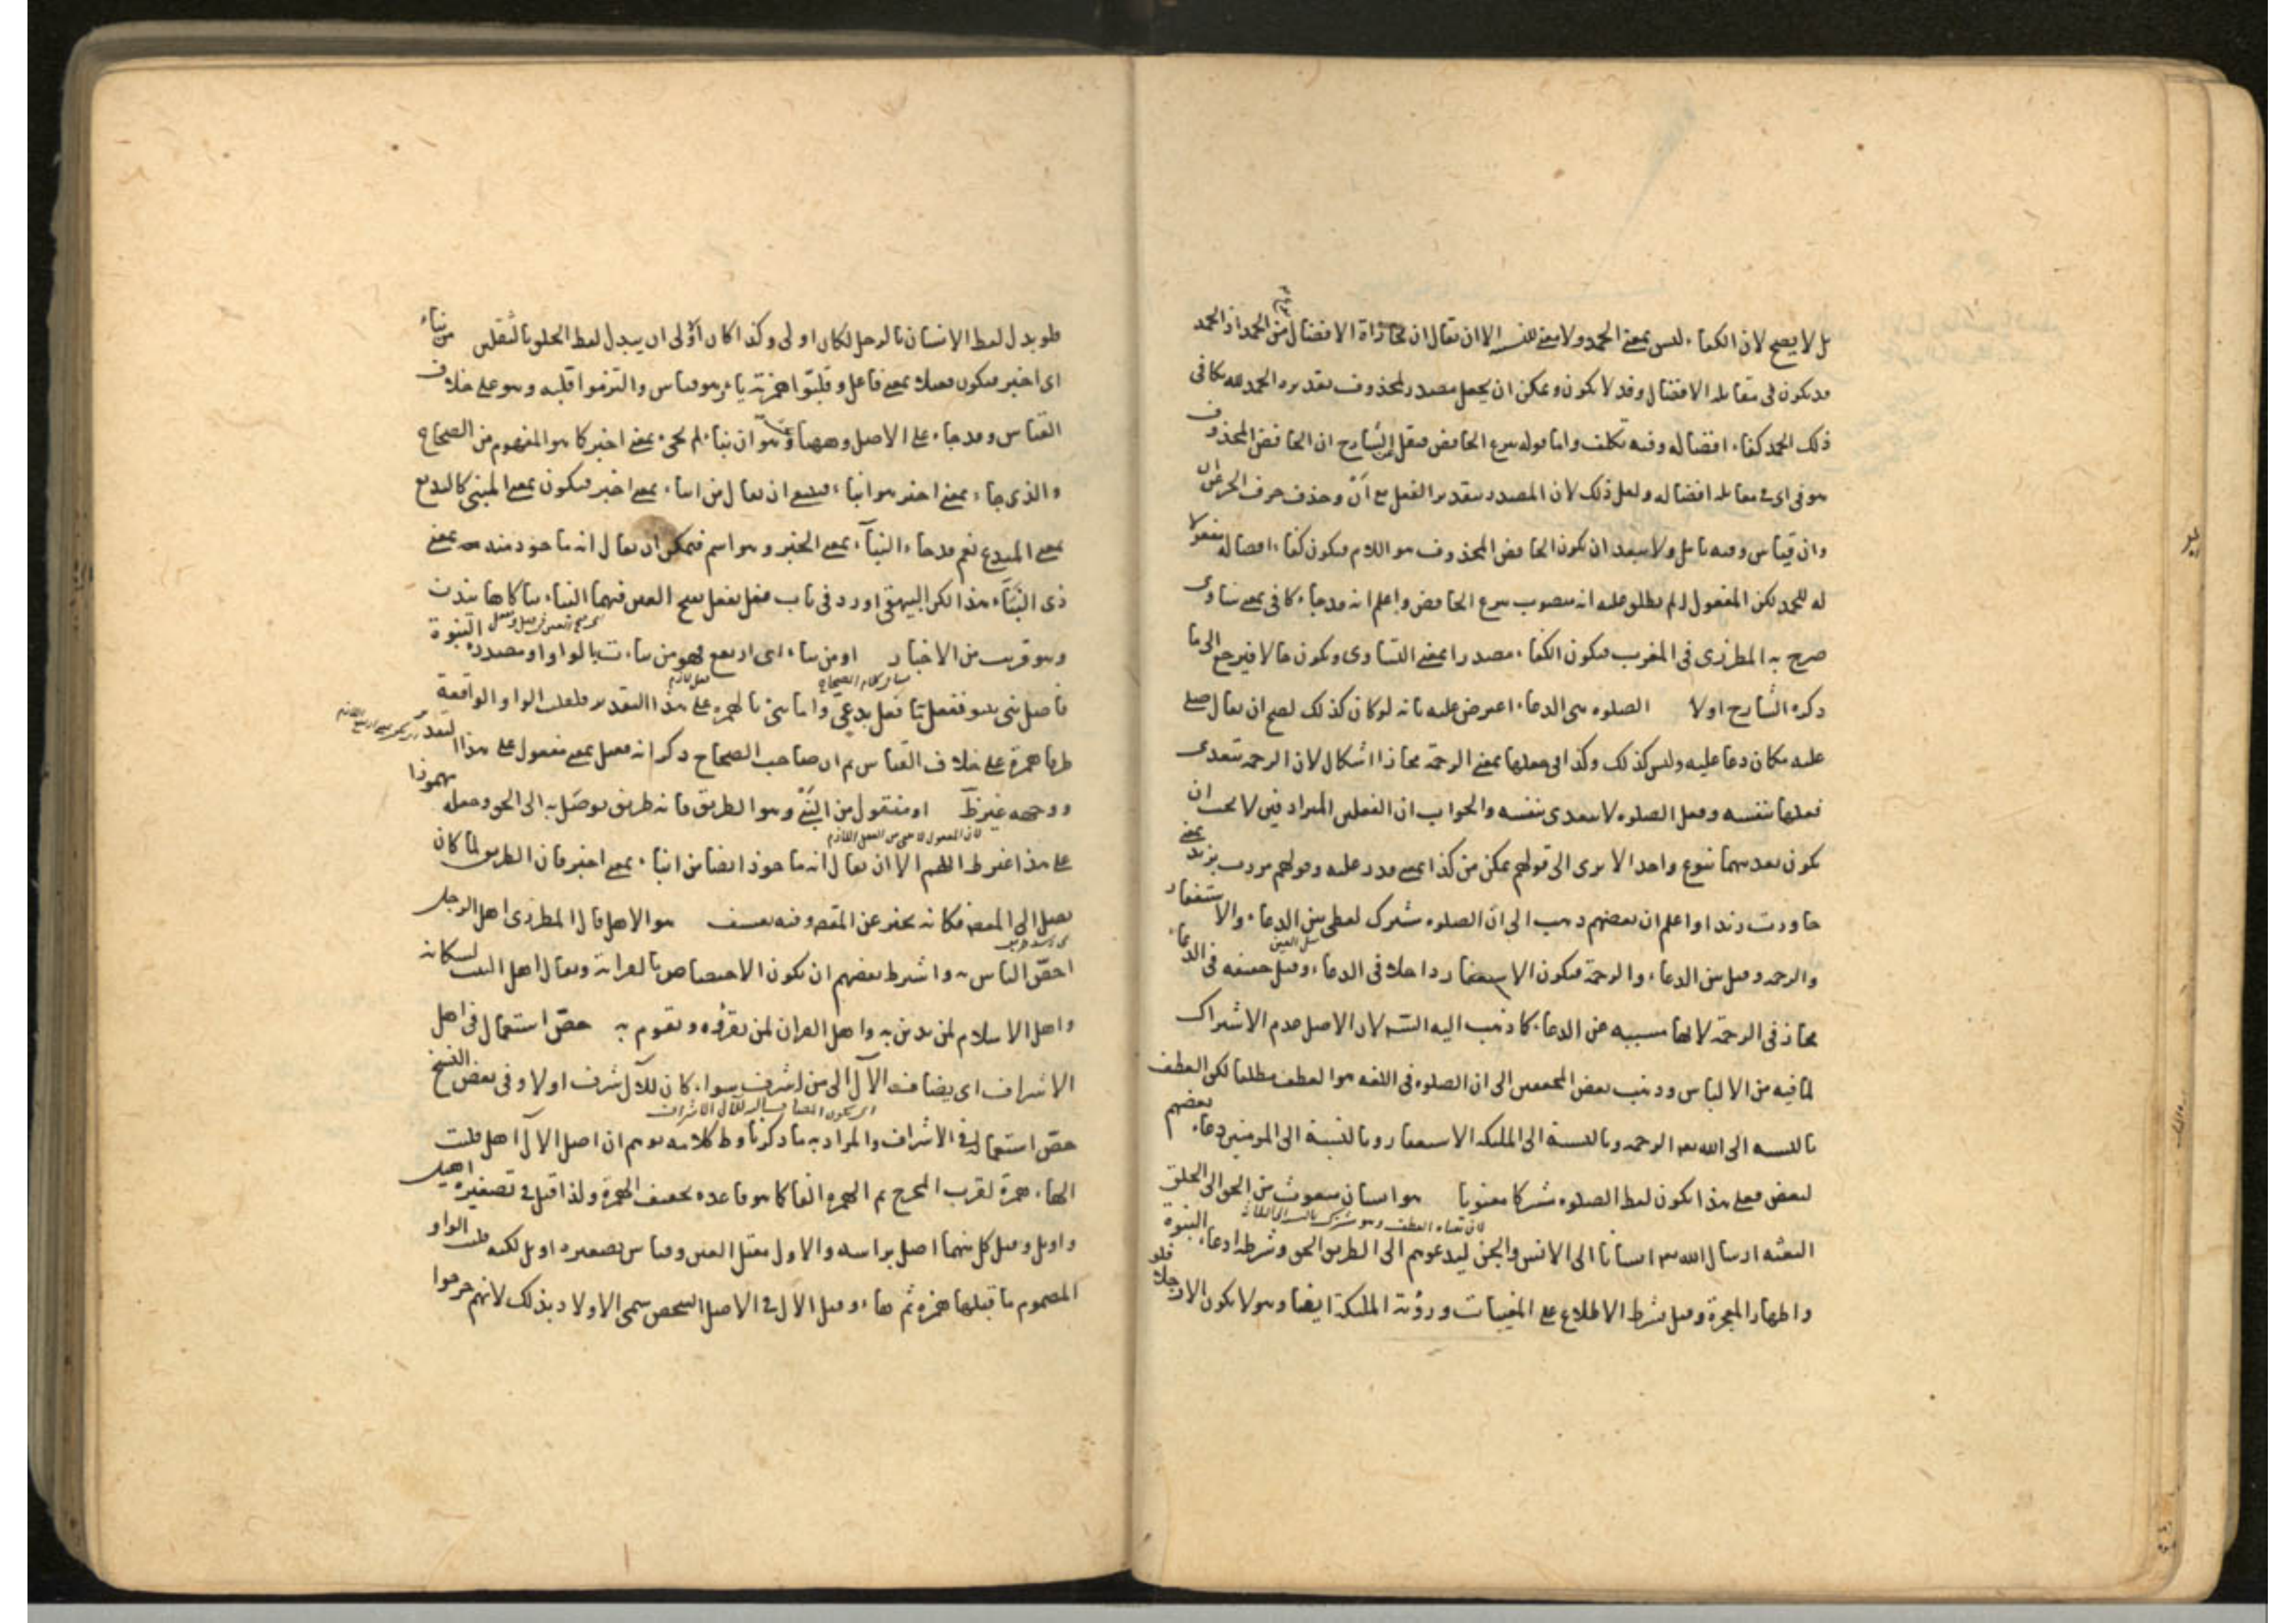 بل لا يصح لان الكفاء ليس بمعنى الحمد ولا معنى للنفس الا ان يقال ان مجازاة الافضال من الحمد اذ الحمد
قد يكون فى مقابلة الافضال وقد لا يكون ويمكن ان يجعل مصدر المحذوف تقديره الحمد لله يكافى
ذلك الحمد كفاء افضاله وفيه تكلف واما قوله بنزع الخافض فنقل عن الشارح ان الخافض المحذوف
هو فى اى فى مقابلة افضاله ولعل ذلك لان المصدر بتقدير الفعل مع أنْ وحذف حرف الجر من ان
وان قياس وفيه تامل ولا يبعد ان يكون الخافض المحذوف هو اللام فيكون كفاء افضاله مفعولا
له للحمد لكن المفعول له لم يطلق عليه انه منصوب بنزع الخافض واعلم انه قد جاء كافى بمعنى ساوى
صرح به المطرزى فى المغرب فيكون الكفاء مصدرا بمعنى التساوى ويكون حالا فيرجع الى ما
ذكره الشارح اولا الصلوة هى الدعاء اعترض عليه بانه لو كان كذلك لصح ان يقال صلى
عليه مكان دعا عليه وليس كذلك وكذا فى جعلها بمعنى الرحمة مجازا اشكال لان الرحمة تتعدى
فعلها بنفسه وفعل الصلوة لا يتعدى بنفسه والجواب ان الفعلين المترادفين لا يجب ان
يكون تعديهما بنوع واحد الا يرى الى قولهم يمكن من كذا بمعنى قدر عليه وقولهم مررت بزيد بمعنى
جاورت زيدا واعلم ان بعضهم ذهب الى ان الصلوة مشترك لفظى بين الدعاء والاستغفار
والرحمة وقيل بين الدعاء والرحمة فيكون الاستغفار داخلا فى الدعاء وقيل حقيقة فى الدعاء
مجاز فى الرحمة لانها مسببة عن الدعاء كما ذهب اليه الشه لان الاصل عدم الاشتراك
لما فيه من الالباس وذهب بعض المحققين الى ان الصلوة فى اللغة هو العطف مطلقا لكن العطف
بالنسبة الى الله تعالى الرحمة وبالنسبة الى الملئكة الاستغفار وبالنسبة الى المؤمنين دعاء بعضهم
لبعض فعلى هذا يكون لفظ الصلوة مشتركا معنويا هو انسان مبعوث من الحق الى الخلق
البعثة ارسال الله تعالى انسانا الى الانس والجن ليدعوهم الى الطريق الحق وشرطه ادعاء النبوة
واظهار المعجزة وقيل شرط الاطلاع على المغيبات ورؤية الملئكة ايضا وهو لا يكون الا رجلا فلو
فلو بدل لفظ الانسان بالرجل لكان اولى وكذا كان أولى ان يبدل لفظ الخلق بالثقلين من نباء
اى اخبر فيكون فعيلا بمعنى فاعل وقلبوا همزته ياء وهو قياس والتزموا قلبه وهو على خلاف
القياس وقد جاء على الاصل وههنا بحث وهو ان نباء لم يجئ بمعنى اخبر كما هو المفهوم من الصحاح
والذى جاء بمعنى اخبر هو انباء فينبغى ان يقال من انباء بمعنى اخبر فيكون بمعنى المبنى كالبديع
بمعنى المبدع نعم قد جاء النبأ بمعنى الخبر وهو اسم فيمكن ان يقال انه ماخوذ منه بمعنى
ذى النبأ هذا لكن البيهقى اورد فى باب فعل يفعل بفتح العين فيهما النباء
وهو قريب من الاخبار او من نباء اى ارتفع فهو من نباءت بالواو او مصدره النبوة
فاصل نبى نبيو ففعل به ما فعل بدعى واما نبئ بالهمزة على هذا التقدير فلقلب الواو الواقعة
طرفا همزة على خلاف القياس ثم ان صاحب الصحاح ذكر انه فعيل بمعنى مفعول على هذا التقدير
ووجهه غير ظ او منقول من النبئ وهو الطريق فانه طريق يوصل به الى الحق وجعله مهموزا
لان المفعول لا يجئ من الفعل اللازم
على هذا غير ظ اللهم الا ان يقال انه ماخوذ ايضا من انباء بمعنى اخبر فان الطريق لما كان
يصل الى المقصد فكانه يخبر عن المقصد وفيه تعسف هو الاهل قال المطرزى اهل الرجل
اخص الناس به واشترط بعضهم ان يكون الاختصاص بالقرابة ويقال اهل البيت لسكانه
واهل الاسلام لمن يدين به واهل القران لمن يقرؤه ويقوم به خص استعماله فى اهل
الاشراف اى يضاف الآل الى من اشرف سواء كان للآل شرف اولا وفى بعض النسخ
خص استعماله فى الاشراف والمراد به ما ذكرنا وظ كلامه يوهم ان اصل الال آ اهل قلبت
الهاء همزة لقرب المخرج ثم الهمزة الفا كما هو قاعدة تخفيف الهمزة ولذا قيل فى تصغيره اهيل
واويل وقيل كل منهما اصل براسه والاول معتل العين وقياس تصغيره اويل لكنه قلب الواو
المضموم ما قبلها همزة ثم هاء وقيل الال فى الاصل الشخص سمى الاولاد بذلك لانهم خرجوا